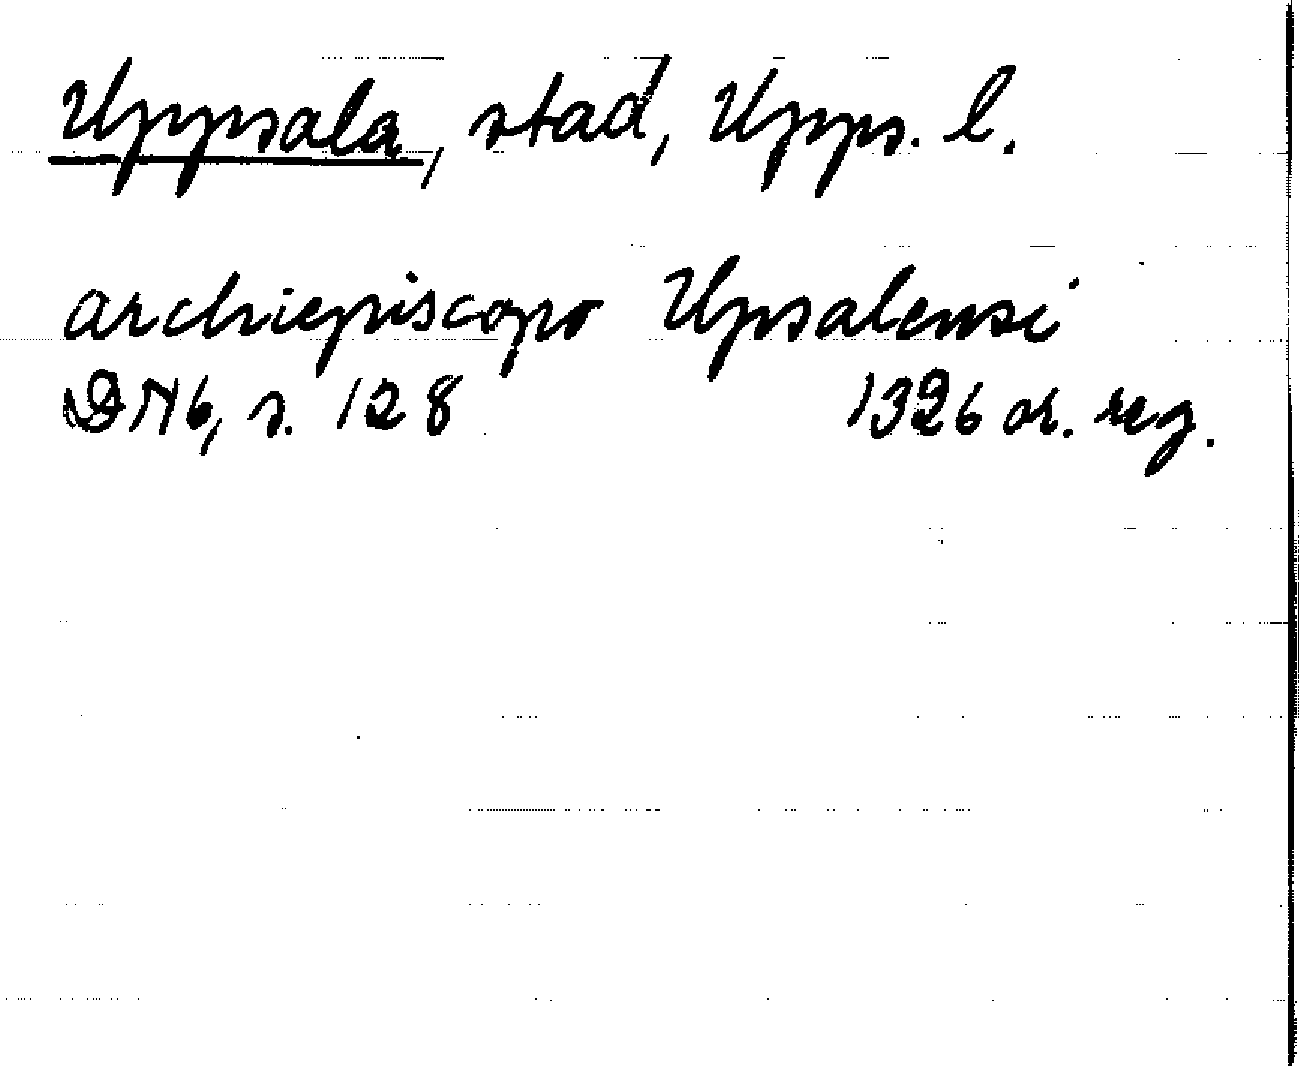 Uppsala, stad, Upps. l.
archiepiscopo Upsalensi
DN6, s. 128 1326 or. reg.